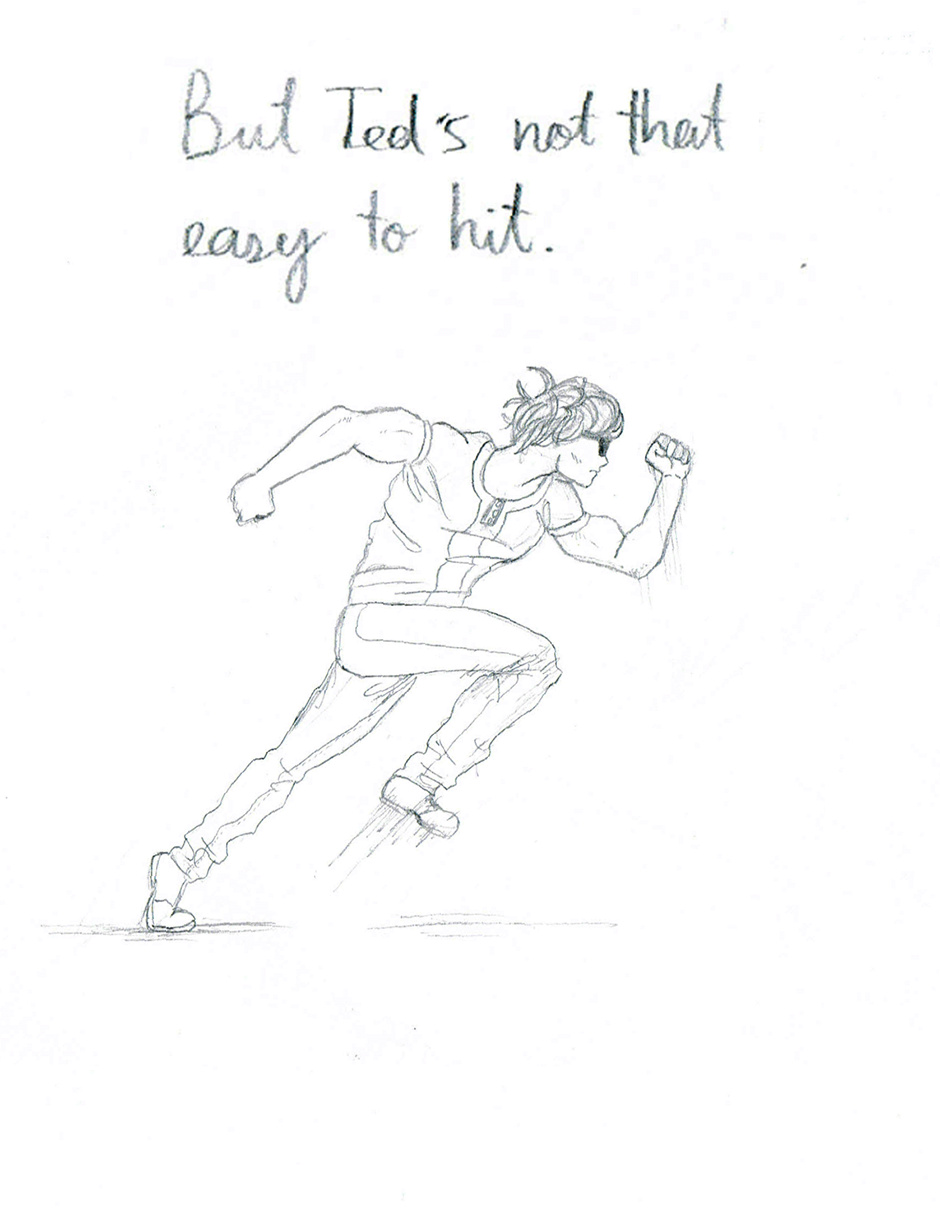 But Ted's not that
easy to hit.